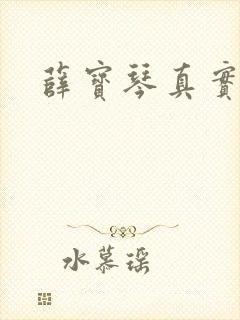 薛寶琴真實
水慕瑶